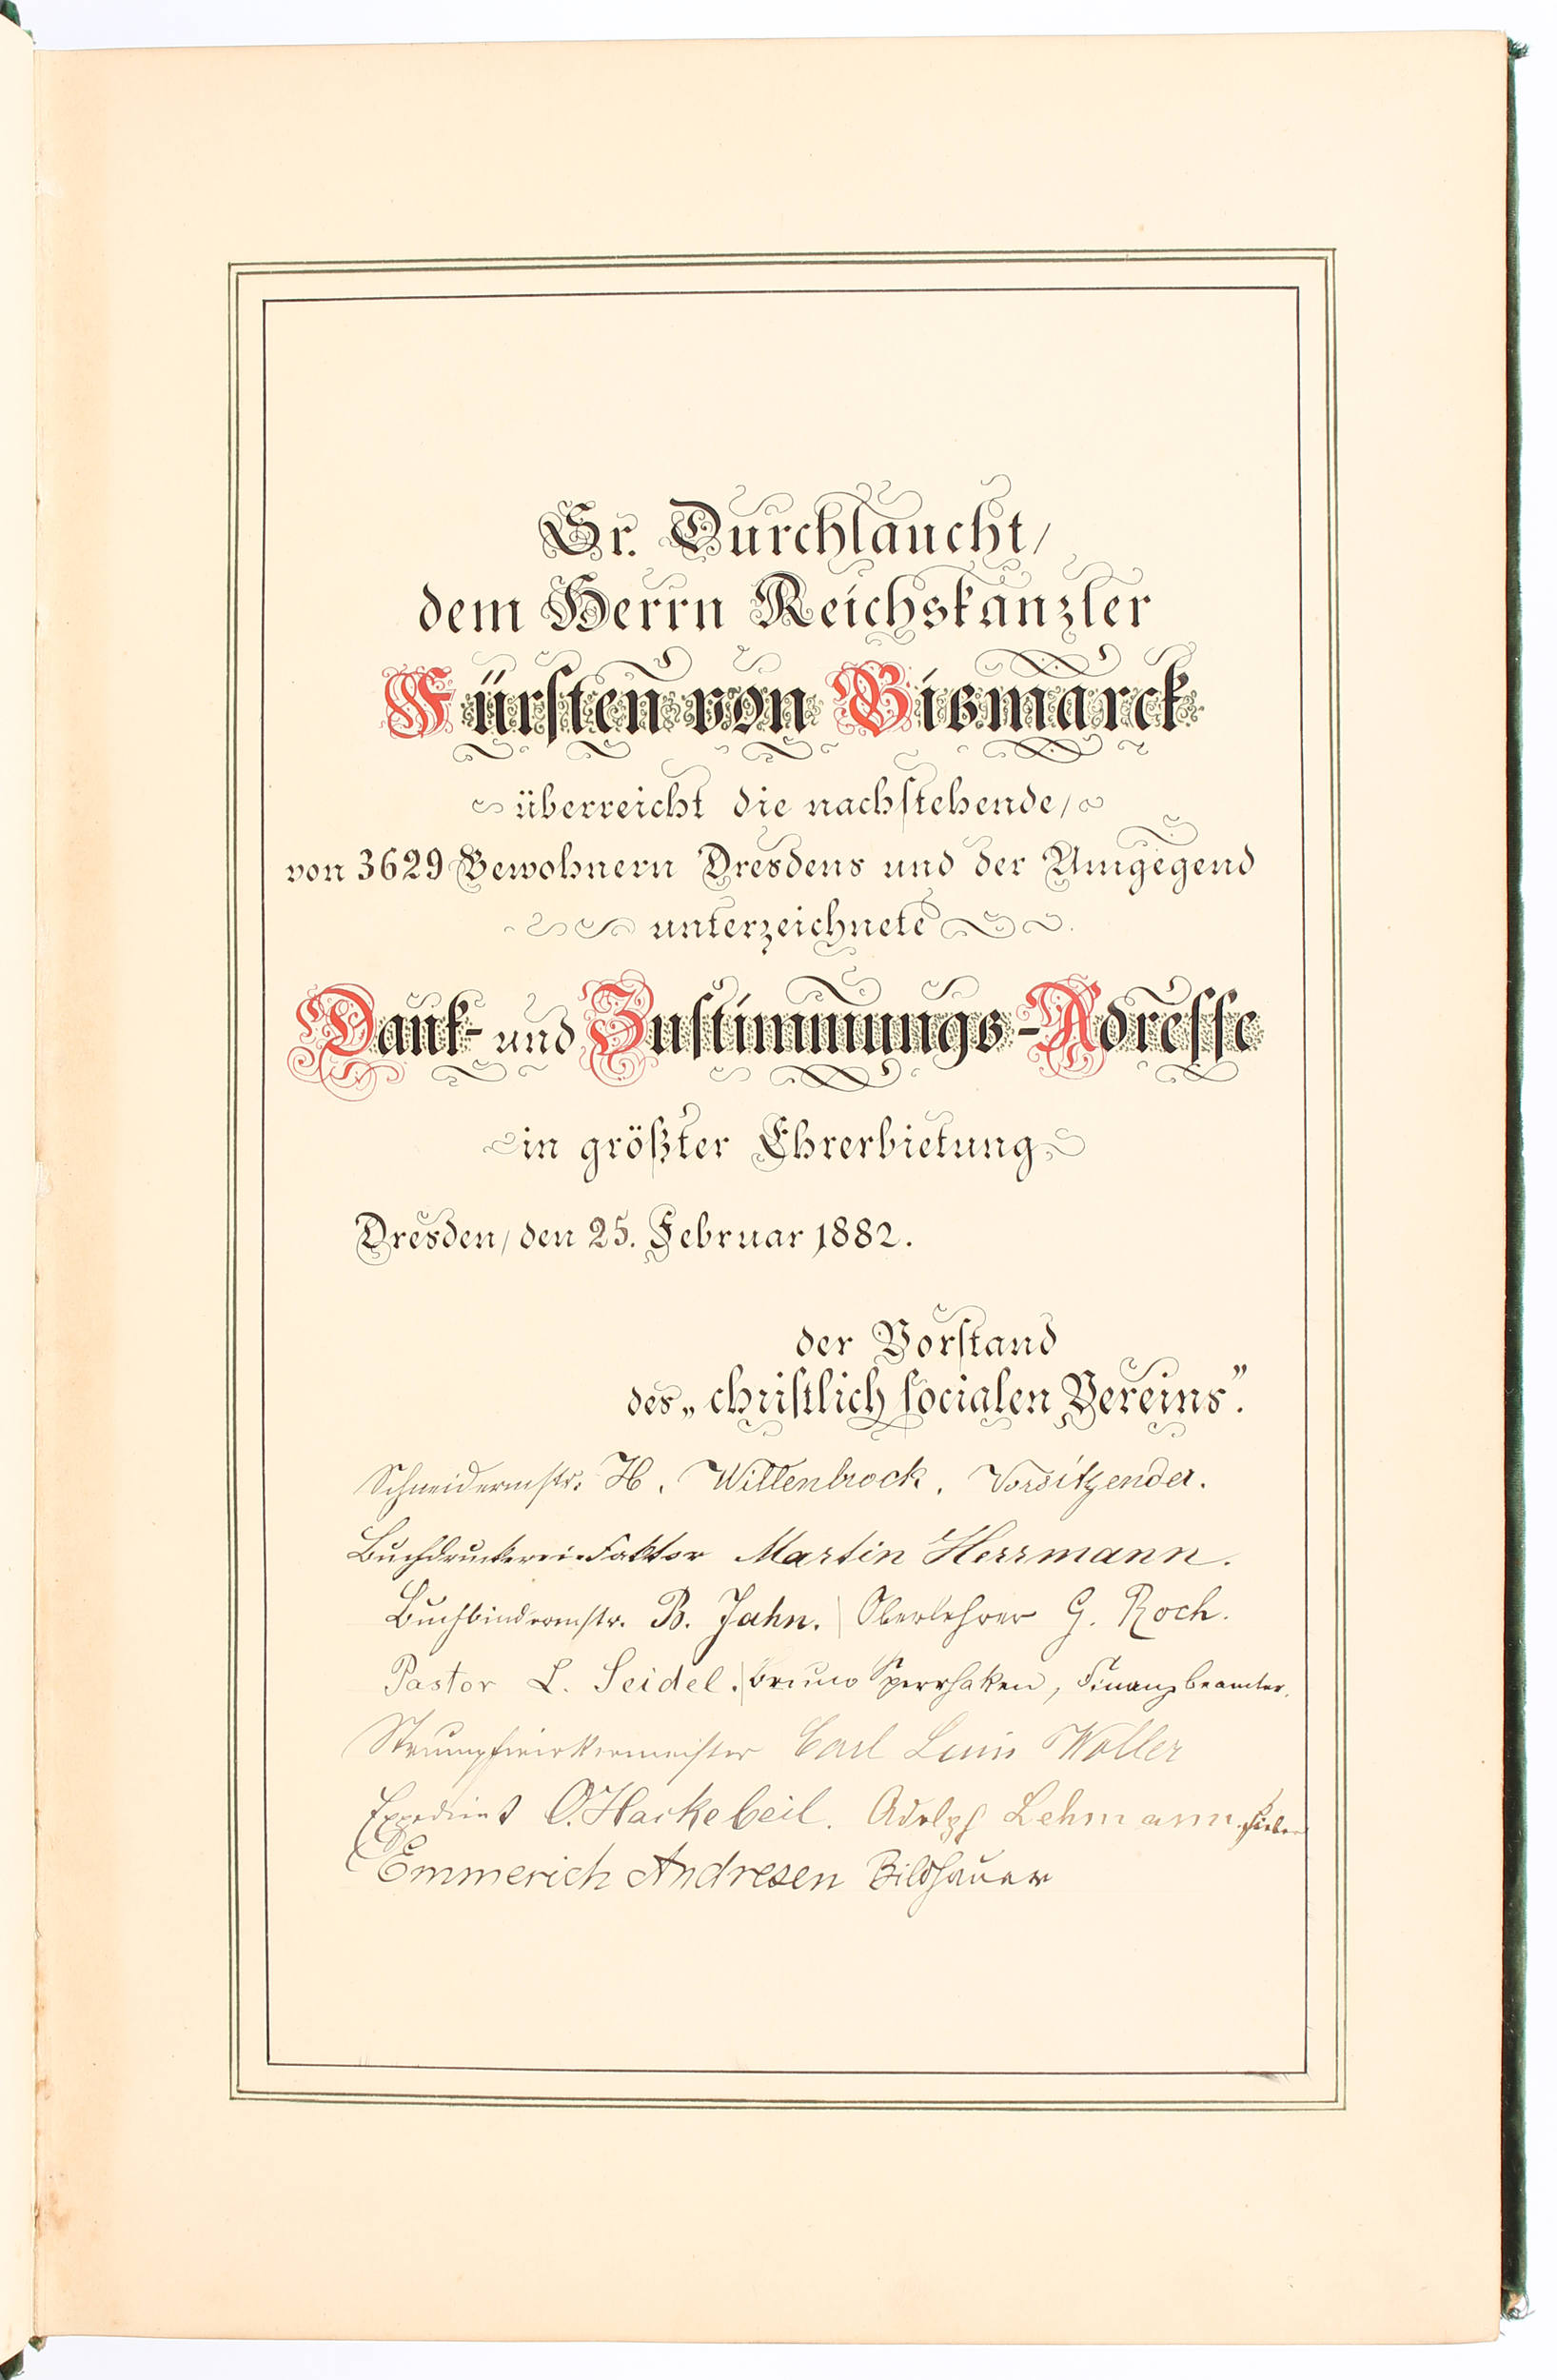 Sr. Durchlaucht,
dem Herrn Reichskanzler
Fürsten von Bismarck
überreicht die nachstehende,
von 3629 Bewohnern Dresdens und der Umgegend
unterzeichnete
Dank- und Zustimmungs-Adresse
in größter Ehrerbietung
Dresden, den 25. Februar 1882.
der Vorstand
des „christlich socialen Vereins".
Schneidermstr. H. Willenbrock, Vorsitzender.
Buchdruckerei-Faktor Martin Herrmann.
Buchbindermstr. B. Jahn. Oberlehrer G. Roch.
Pastor L. Seidel. Bruno Sperrhaken, Finanzbeamter.
Strumpfwirkermeister Carl Louis Woller
Expedient O. Hackebeil. Adolph Lehmann
Emmerich Andresen Bildhauer